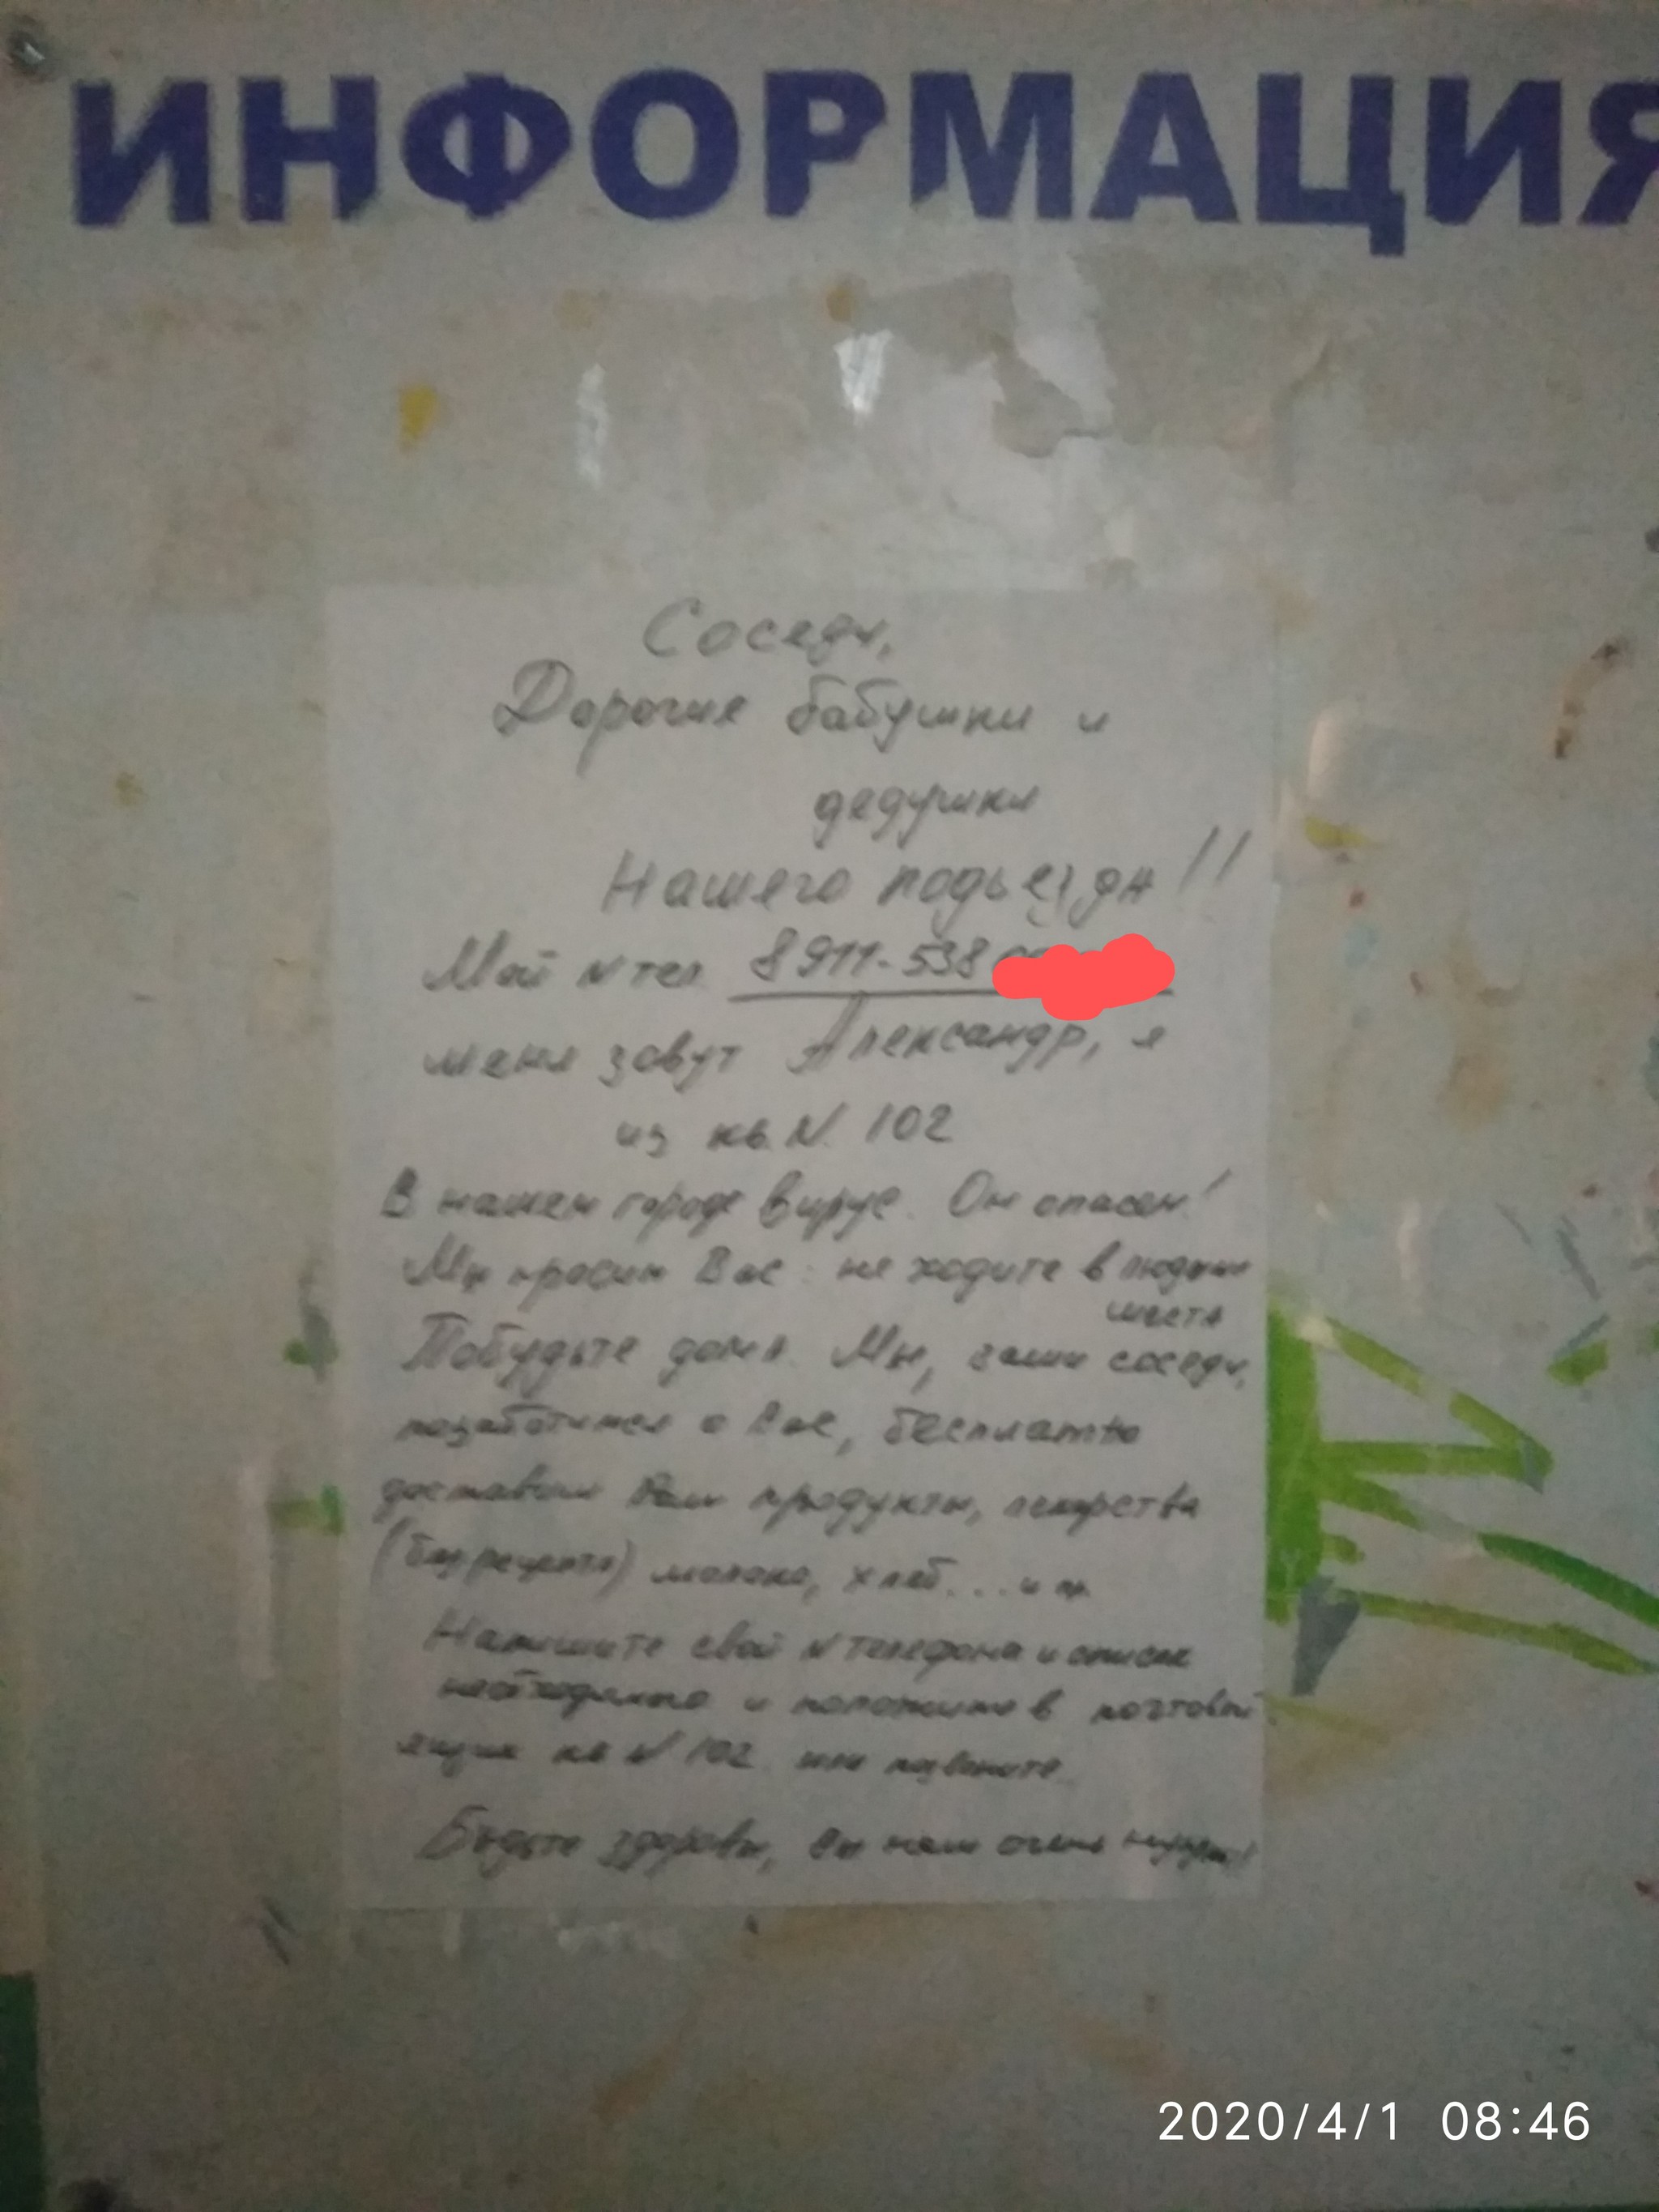 ИНФОРМАЦИЯ
Соседи,
Дорогие бабушки и
дедушки
Нашего подьезда!!
Мой N тел 8911-538
меня зовут Александр, я
из кв. N. 102
В нашем городе вирус. Он опасен!
Мы просим Вас: не ходите в людные
места
Побудьте дома. Мы, ваши соседи,
позаботимся о Вас, бесплатно
доставим Вам продукты, лекарства
(без рецепта) молоко, хлеб... и пр.
Напишите свой N телефона и список
необходимого и положите в почтовый
ящик кв N 102 или позвоните
Будьте здоровы, Вы нам очень нужны!!
2020/4/1 08:46